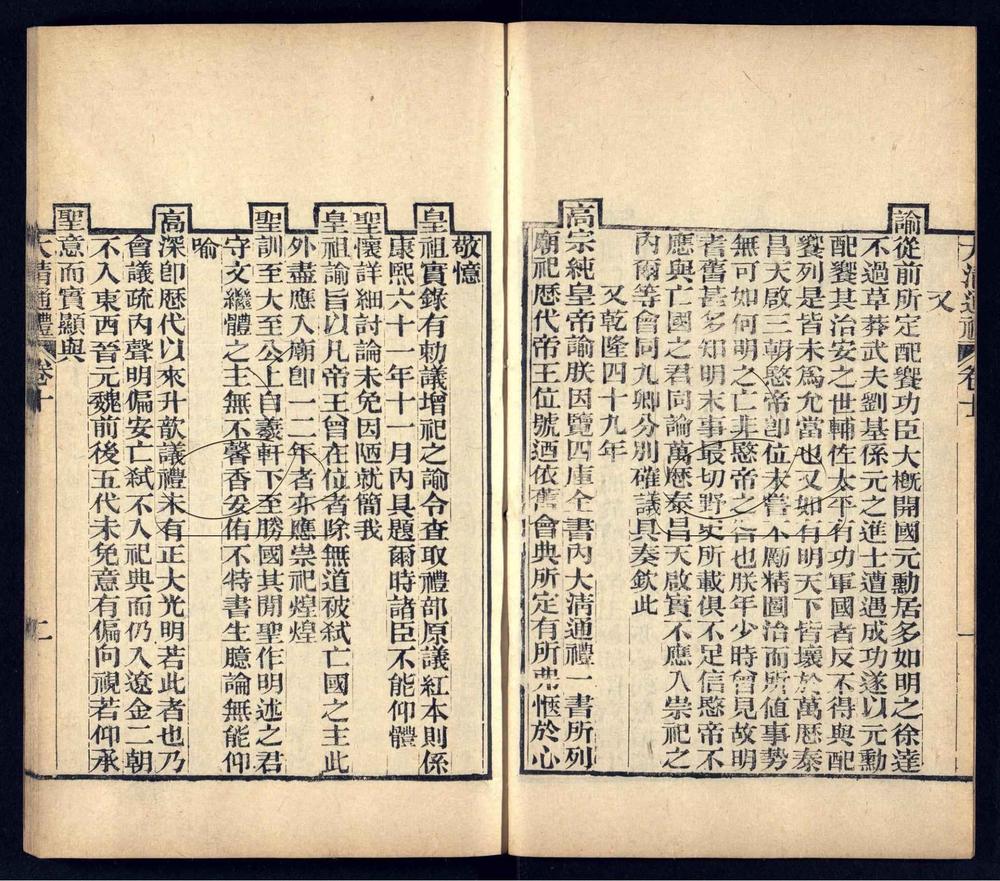 大清通禮 卷十 一
又
諭從前所定配饗功臣大槪開國元勳居多如明之徐達
不過草莽武夫劉基係元之進士遭遇成功遂以元勳
配饗其治安之世輔佐太平有功軍國者反不得與配
饗列是皆未爲允當也又如有明天下皆壞於萬歷泰
昌天啟三朝愍帝卽位未嘗不勵精圖治而所値事勢
無可如何明之亡非愍帝之咎也朕年少時曾見故明
耆舊甚多知明末事最切野史所載俱不足信愍帝不
應與亡國之君同論萬歷泰昌天啟實不應入崇祀之
內爾等會同九卿分別確議具奏欽此
又乾隆四十九年
高宗純皇帝諭朕因覽四庫全書內大淸通禮一書所列
廟祀歷代帝王位號迺依舊會典所定有所弗愜於心
敬憶
皇祖實錄有勅議增祀之諭令查取禮部原議紅本則係
康熙六十一年十一月內具題爾時諸臣不能仰體
聖懷詳細討論未免因陋就簡我
皇祖諭旨以凡帝王曾在位者除無道被弑亡國之主此
外盡應入廟卽一二年者亦應崇祀煌煌
聖訓至大至公上自羲軒下至勝國其閒聖作明述之君
守文繼體之主無不馨香妥侑不特書生臆論無能仰
喻
高深卽歷代以來升歆議禮未有正大光明若此者也乃
會議疏內聲明偏安亡弑不入祀典而仍入遼金二朝
不入東西晉元魏前後五代未免意有偏向視若仰承
聖意而實顯與
大淸通禮 卷十 二